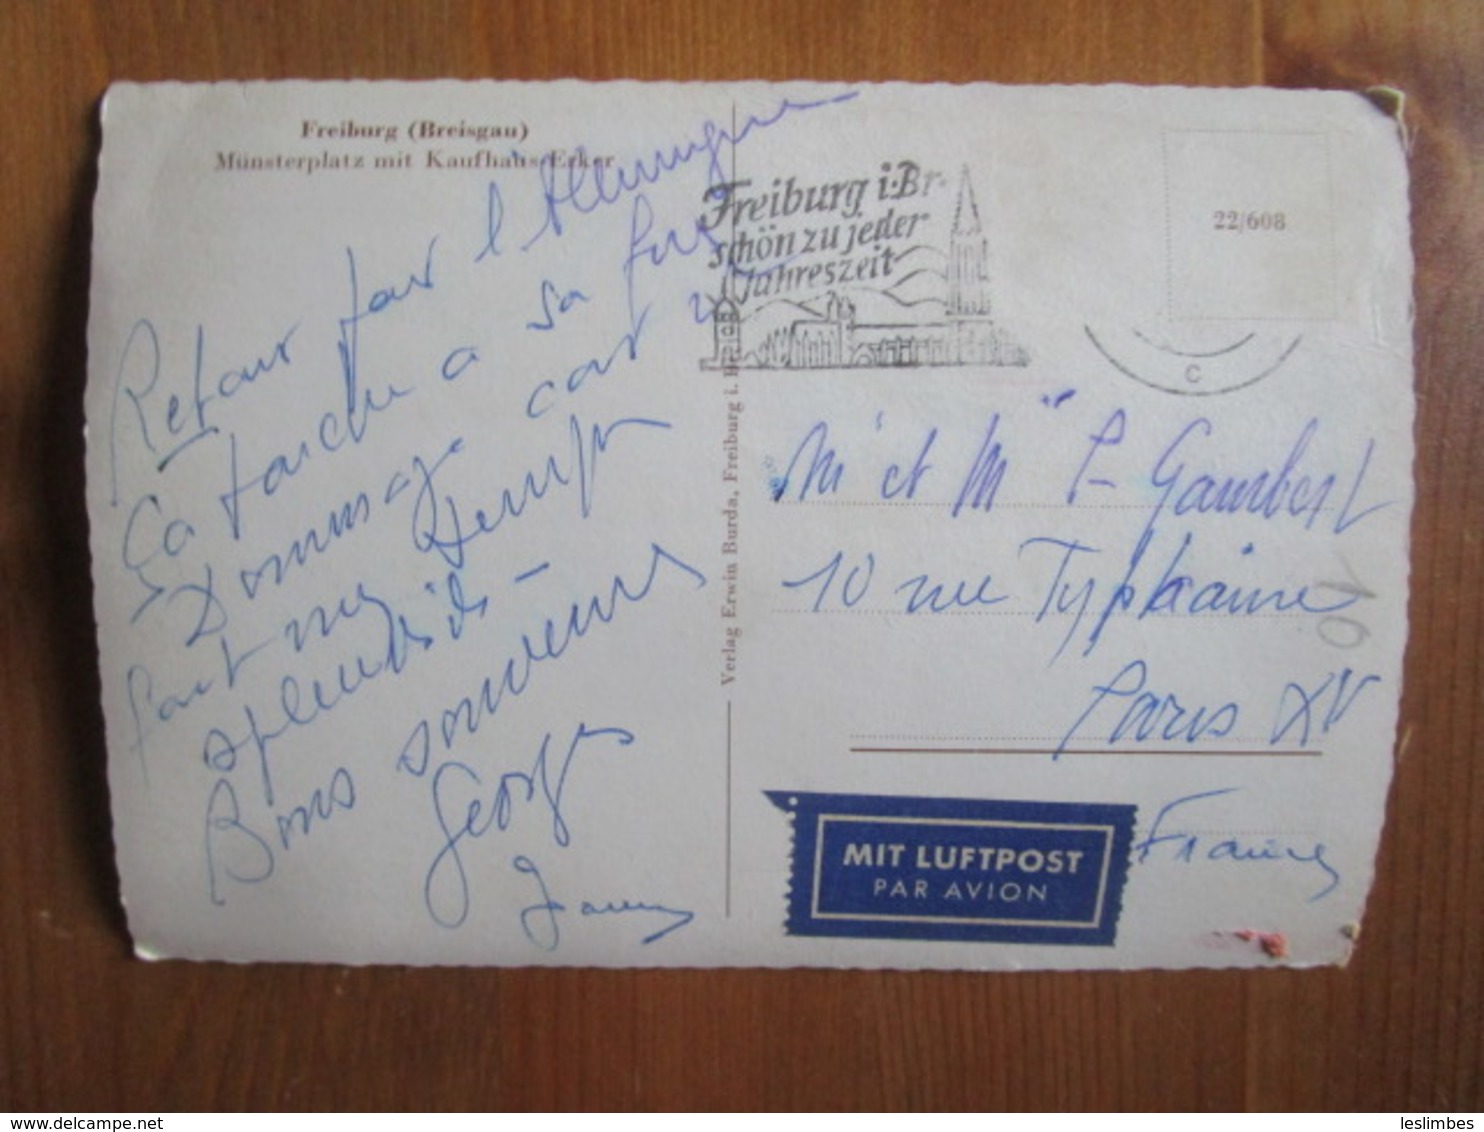 Freiburg (Breisgau)
Münsterplatz mit Kaufhaus-Erker
Retour par l'Allemagne
Ça touche à sa fin
Dommage car il
fait un temps
splendide –
Bons souvenirs
Georges
Verlag Erwin Burda, Freiburg i. Br.
Freiburg i. Br.
schön zu jeder
Jahreszeit
22/608
C
Mr et Mme P. Gambert
10 rue
Paris XV
France
MIT LUFTPOST
PAR AVION
10
www.delcampe.net
leslimbes